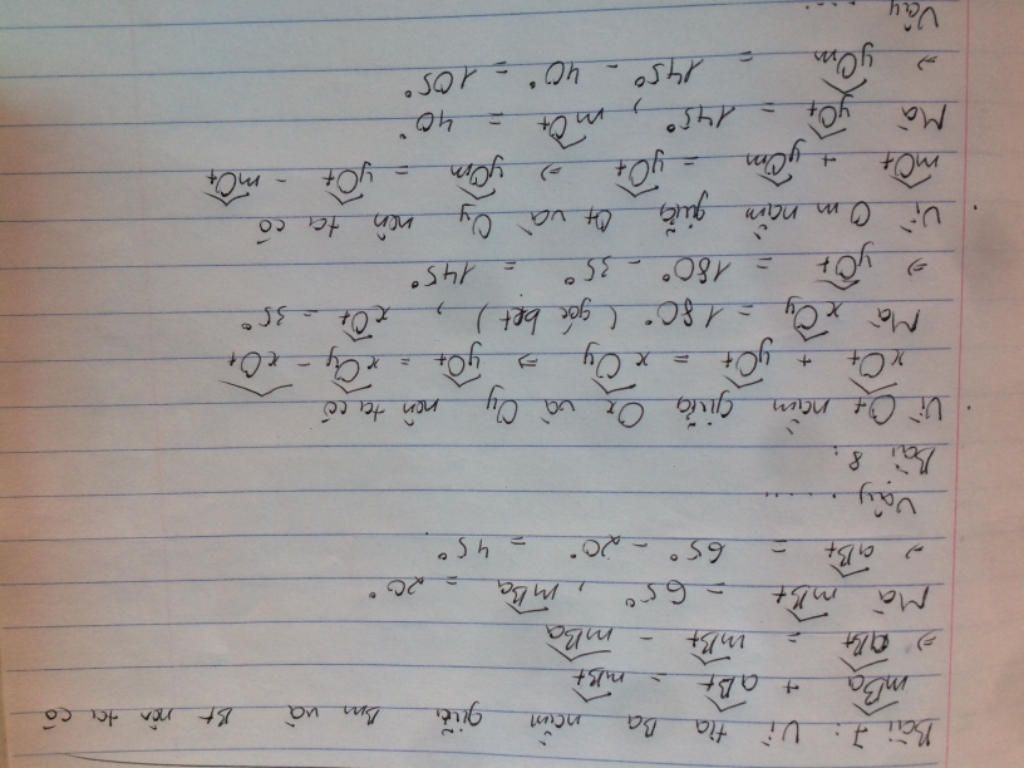 Bài 7: Vì tia Ba nằm giữa Bm và Bt nên ta có
mBa + aBt = mBt
⇒ aBt = mBt - mBa
Mà mBt = 65°, mBa = 20°
⇒ aBt = 65° - 20° = 45°
Vậy ......
Bài 8:
Vì Ot nằm giữa Ox và Oy nên ta có
xOt + yOt = xOy ⇒ yOt = xOy - xOt
Mà xOy = 180° (góc bẹt), xOt = 35°
⇒ yOt = 180° - 35° = 145°
Vì Om nằm giữa Ot và Oy nên ta có
mOt + yOm = yOt ⇒ yOm = yOt - mOt
Mà yOt = 145°, mOt = 40°
⇒ yOm = 145° - 40° = 105°
Vậy .....